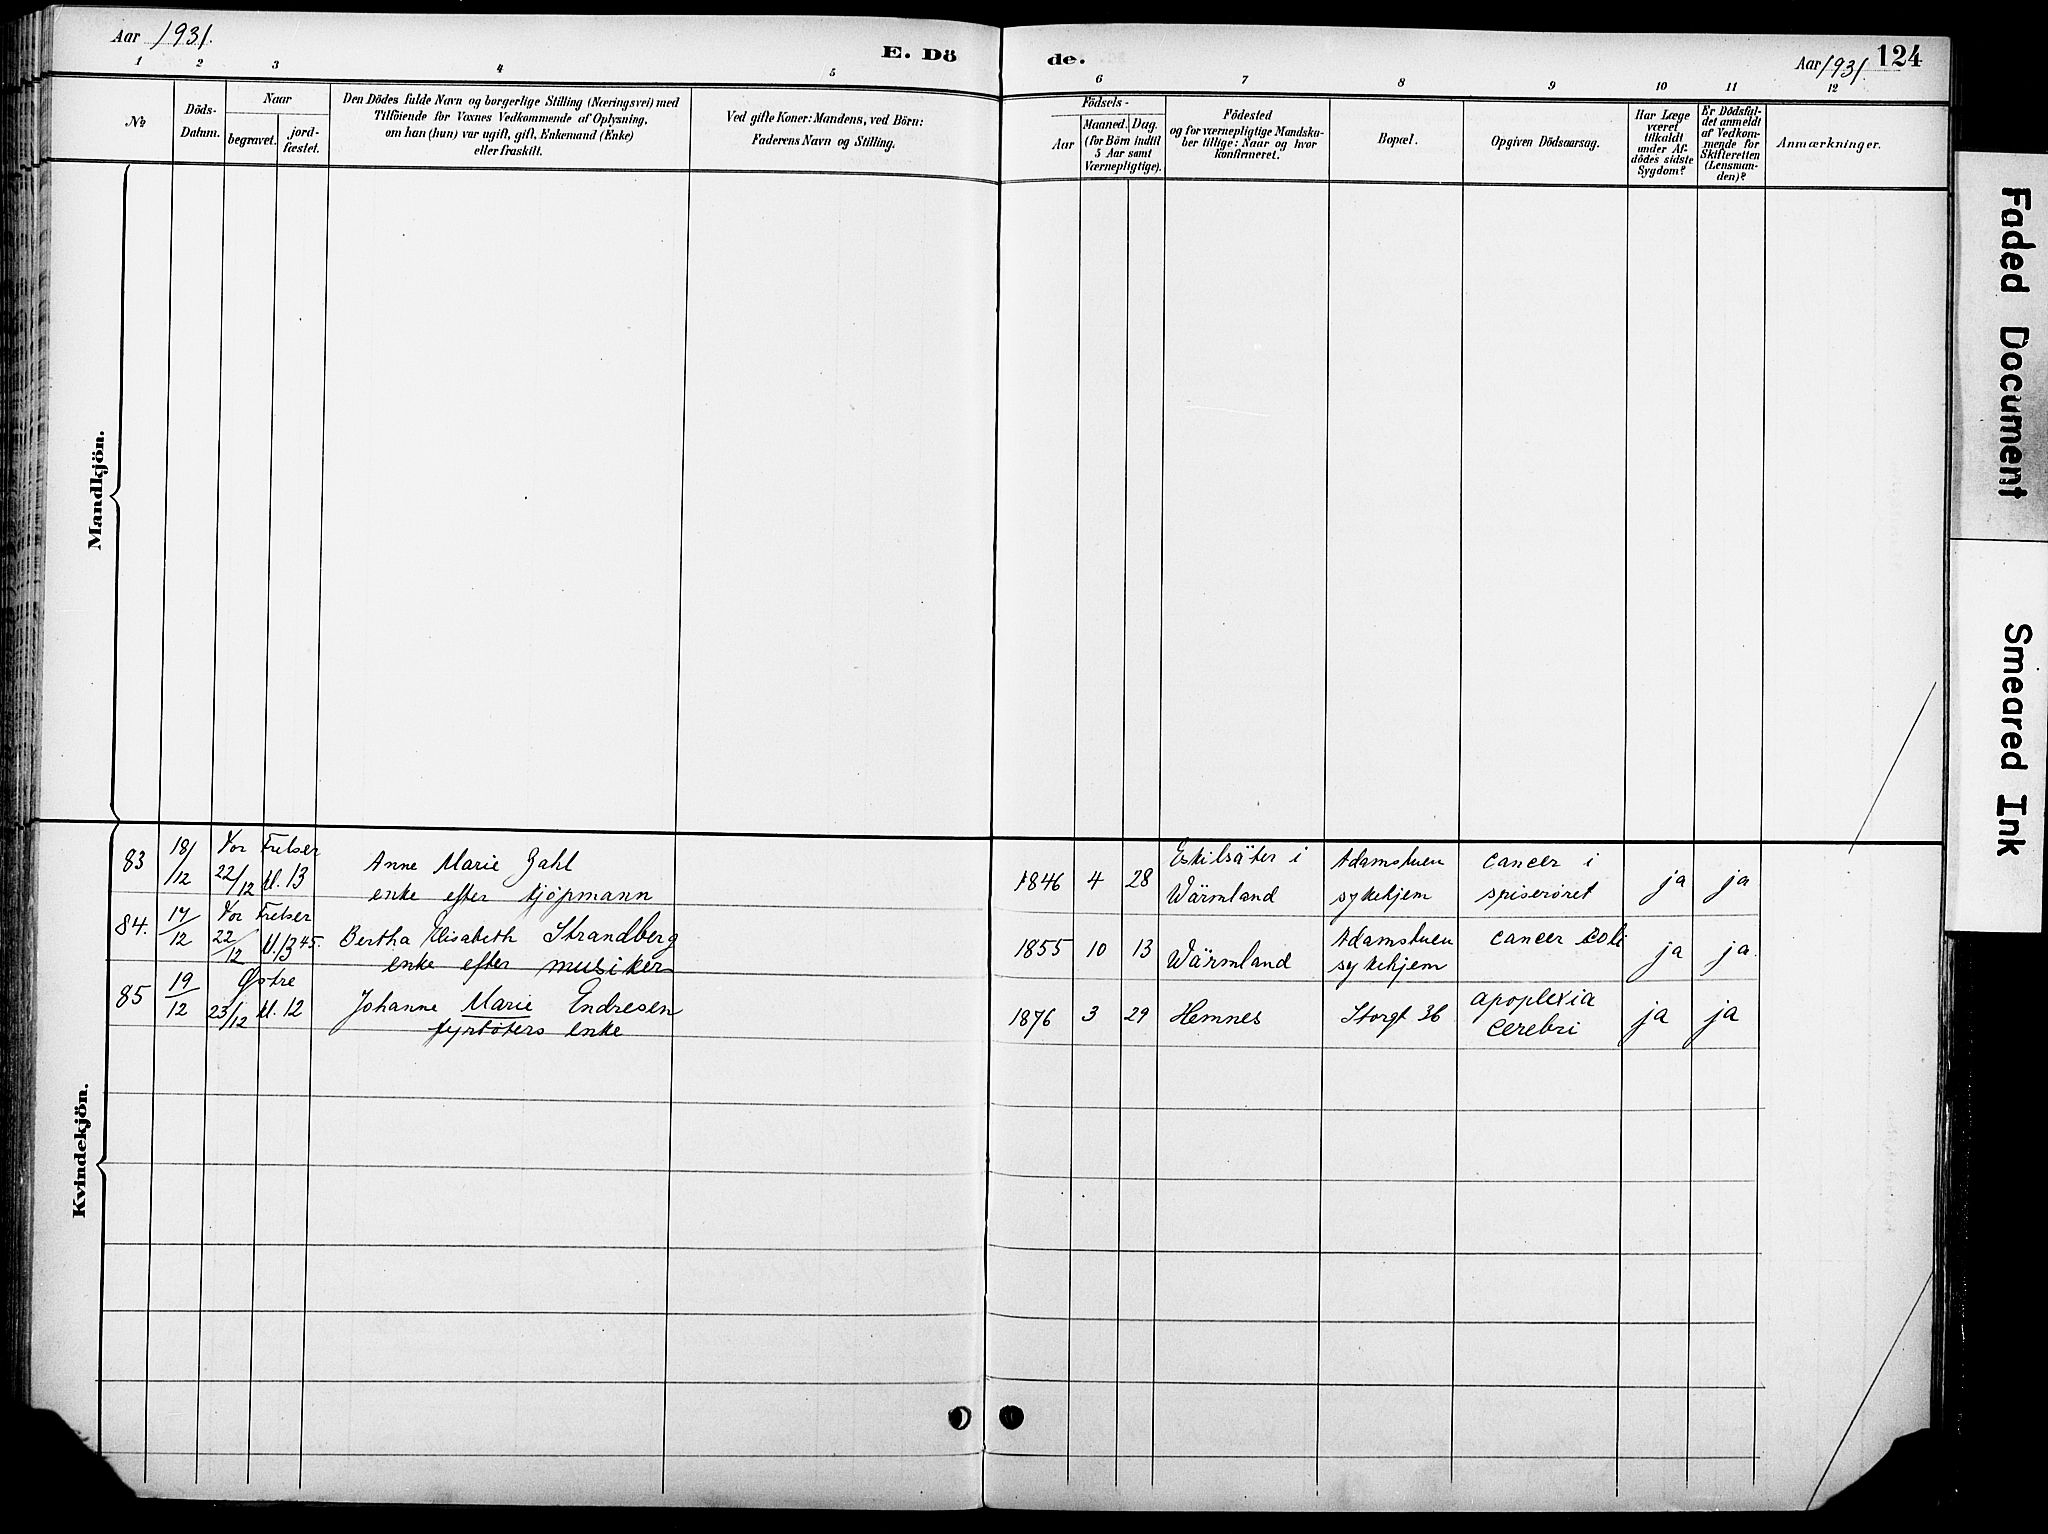 Aar 1931.
E. Dö
de.
Aar 1931.
124
1
2
3
4
5
6
7
8
9
10
11
12
№
Döds-
Datum.
Naar
begravet.
jord-
fæstet.
Den Dödes fulde Navn og borgerlige Stilling (Næringsvei) med
Tilföiende for Voxnes Vedkommende af Oplysning,
om han (hun) var ugift, gift, Enkemand (Enke)
eller fraskilt.
Ved gifte Koner: Mandens, ved Börn:
Faderens Navn og Stilling.
Födsels-
Aar
Maaned.
Dag.
(for Börn indtil
5 Aar samt
Værnepligtige).
Födested
og for værnepligtige Mandska-
ber tillige: Naar og hvor
konfirmeret.
Bopæl.
Opgiven Dödsaarsag.
Har Læge
været
tilkaldt
under Af-
dödes sidste
Sygdom?
Er Dödsfal-
det anmeldt
af Vedkom-
mende for
Skifteretten
(Lensman-
den)?
Anmærkninger.
Mandkjön.
Kvindekjön.
83
18/12
Vor Frelser
22/12
kl. 13
Anne Marie Dahl
enke efter kjöpmann
1846
4
28
Eskilsäter i
Wärmland
Adamstuen
sykehjem
cancer i
spiserøret
ja
ja
84.
17/12
Vor Frelser
22/12
kl. 13 45.
Bertha Elisabeth Strandberg
enke efter musiker
1855
10
13
Wärmland
Adamstuen
sykehjem
cancer coli
ja
ja.
85
19/12
Østre
23/12
kl. 12
Johanne Marie Endresen
fyrbøters enke
1876
3
29
Hemnes
Storgt 36
apoplexia
cerebri
ja
ja
Faded Document
Smeared Ink